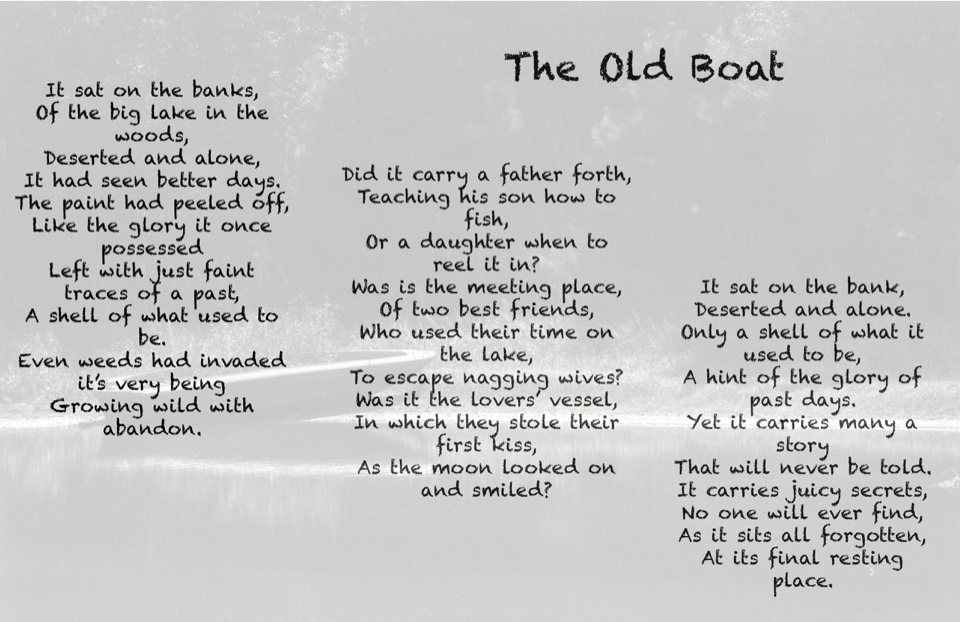 The Old Boat
It sat on the banks,
Of the big lake in the
woods,
Deserted and alone,
It had seen better days.
The paint had peeled off,
Like the glory it once
possessed
Left with just faint
traces of a past,
A shell of what used to
be.
Even weeds had invaded
it's very being
Growing wild with
abandon.
Did it carry a father forth,
Teaching his son how to
fish,
Or a daughter when to
reel it in?
Was is the meeting place,
Of two best friends,
Who used their time on
the lake,
To escape nagging wives?
Was it the lovers' vessel,
In which they stole their
first kiss,
As the moon looked on
and smiled?
It sat on the bank,
Deserted and alone.
Only a shell of what it
used to be,
A hint of the glory of
past days.
Yet it carries many a
story
That will never be told.
It carries juicy secrets,
No one will ever find,
As it sits all forgotten,
At its final resting
place.